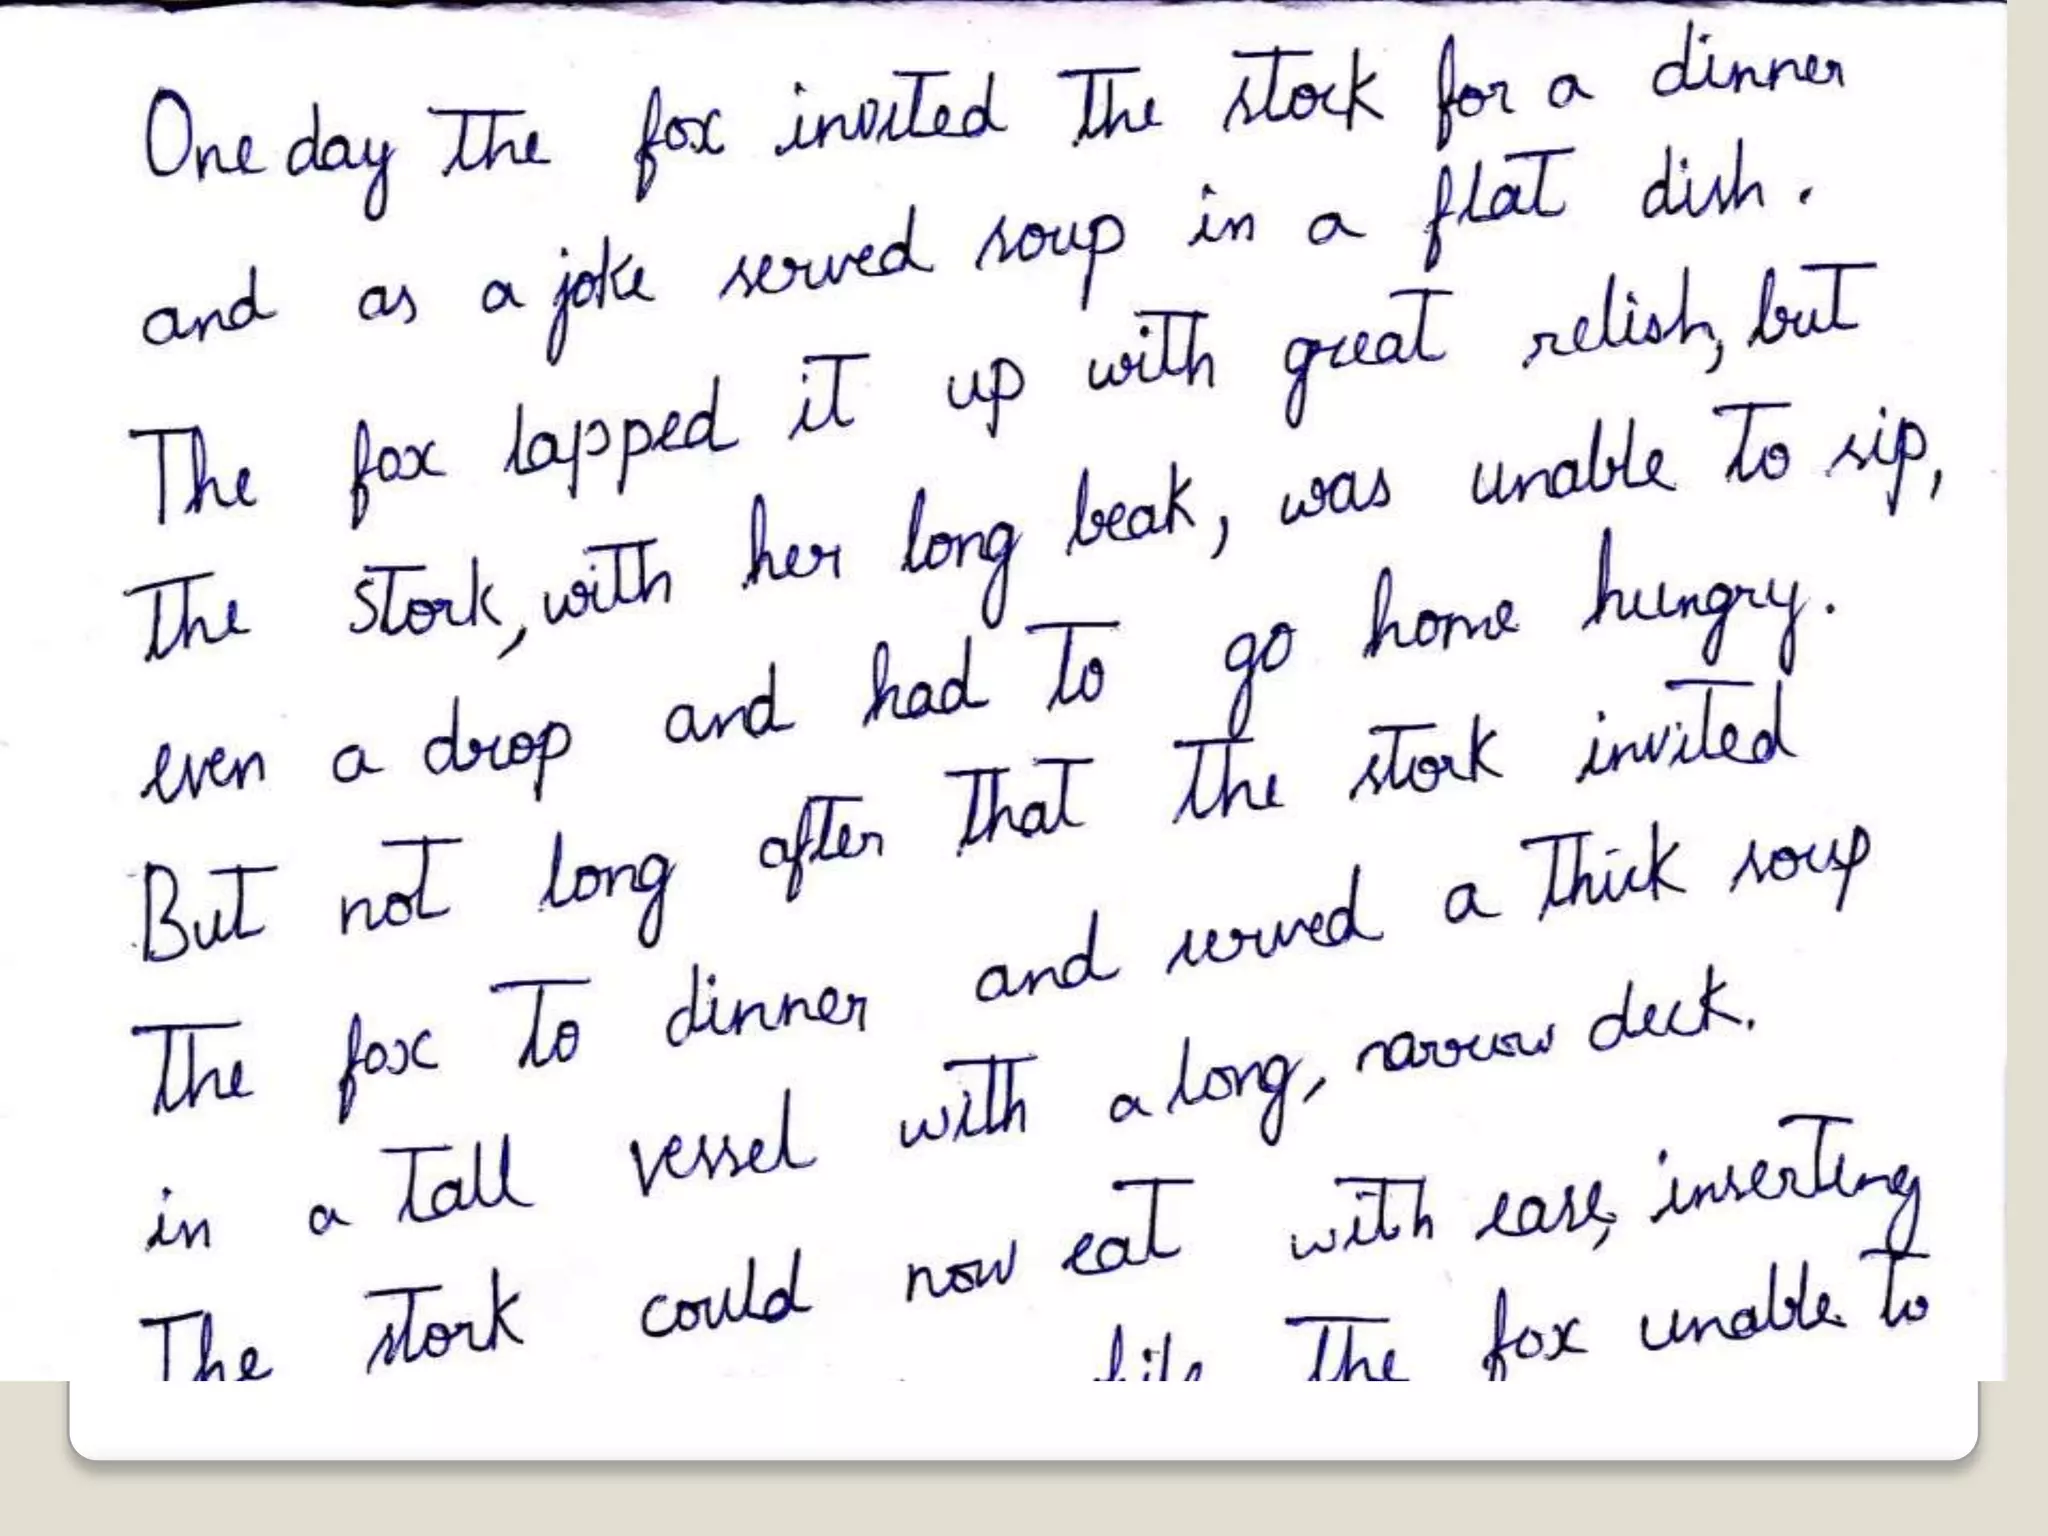 One day The fox invited The stork for a dinner
and as a joke served soup in a flat dish.
The fox lapped it up with great relish, but
The stork, with her long beak, was unable To sip,
even a drop and had To go home hungry.
But not long after That The stork invited
The fox To dinner and served a Thick soup
in a Tall vessel with a long, narrow deck.
The stork could now eat with ease, inserting
The fox unable to